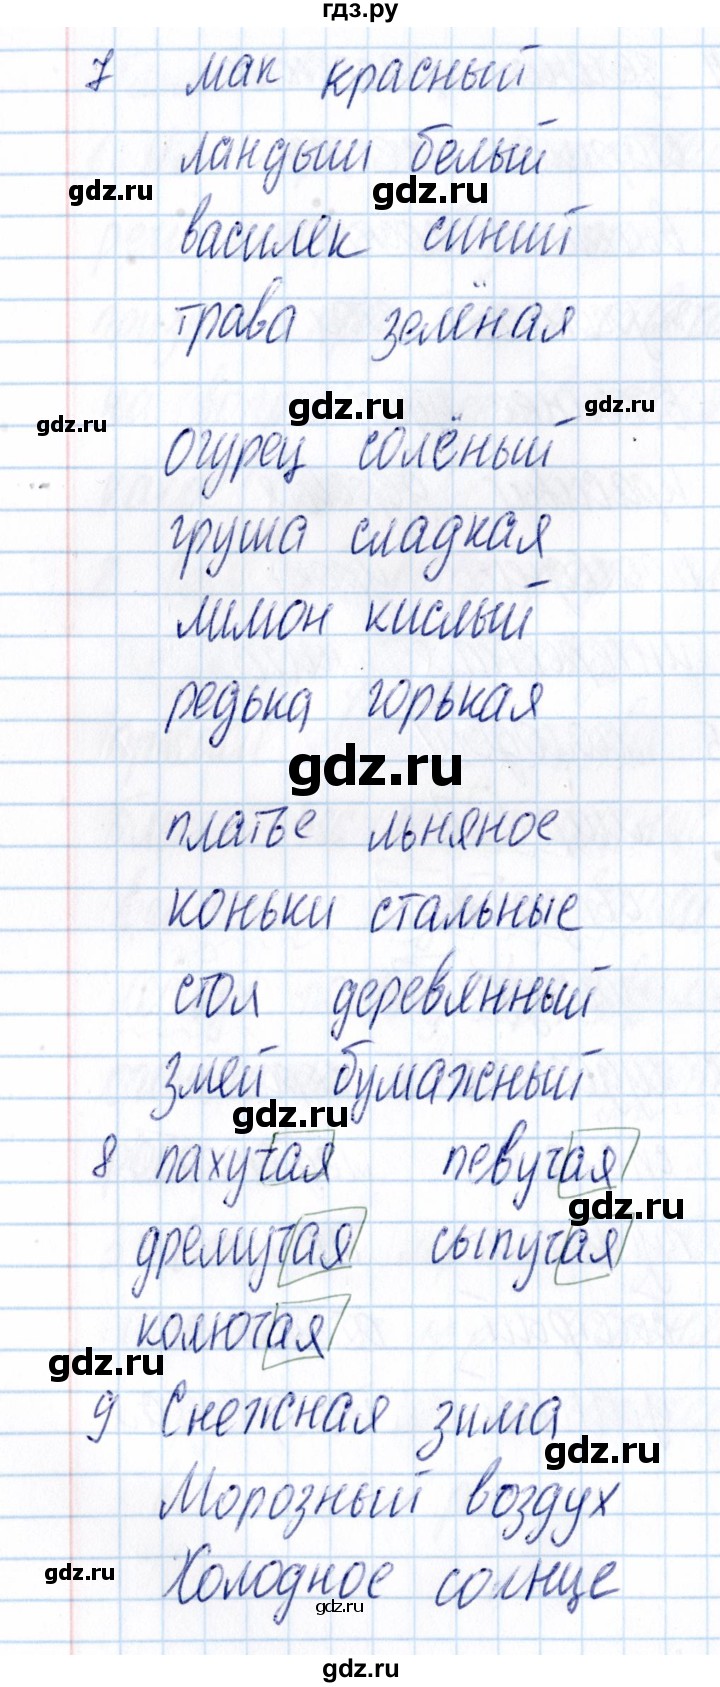 гдз.ру
7 мак красный
ландыш белый
gdz.ru gdz.ru
василек синий
трава зелёная
gdz.ru gdz.ru gdz.ru
огурец солёный
груша сладкая
лимон кислый
редька горькая
gdz.ru
платье льняное
коньки стальные
стол деревянный
змей бумажный
gdz.ru
8 пахучая певучая
gdz.ru
дремучая сыпучая
колючая
gdz.ru
9 Снежная зима
gdz.ru
Морозный воздух
gdz.ru
Холодное солнце
gdz.ru
gdz.ru